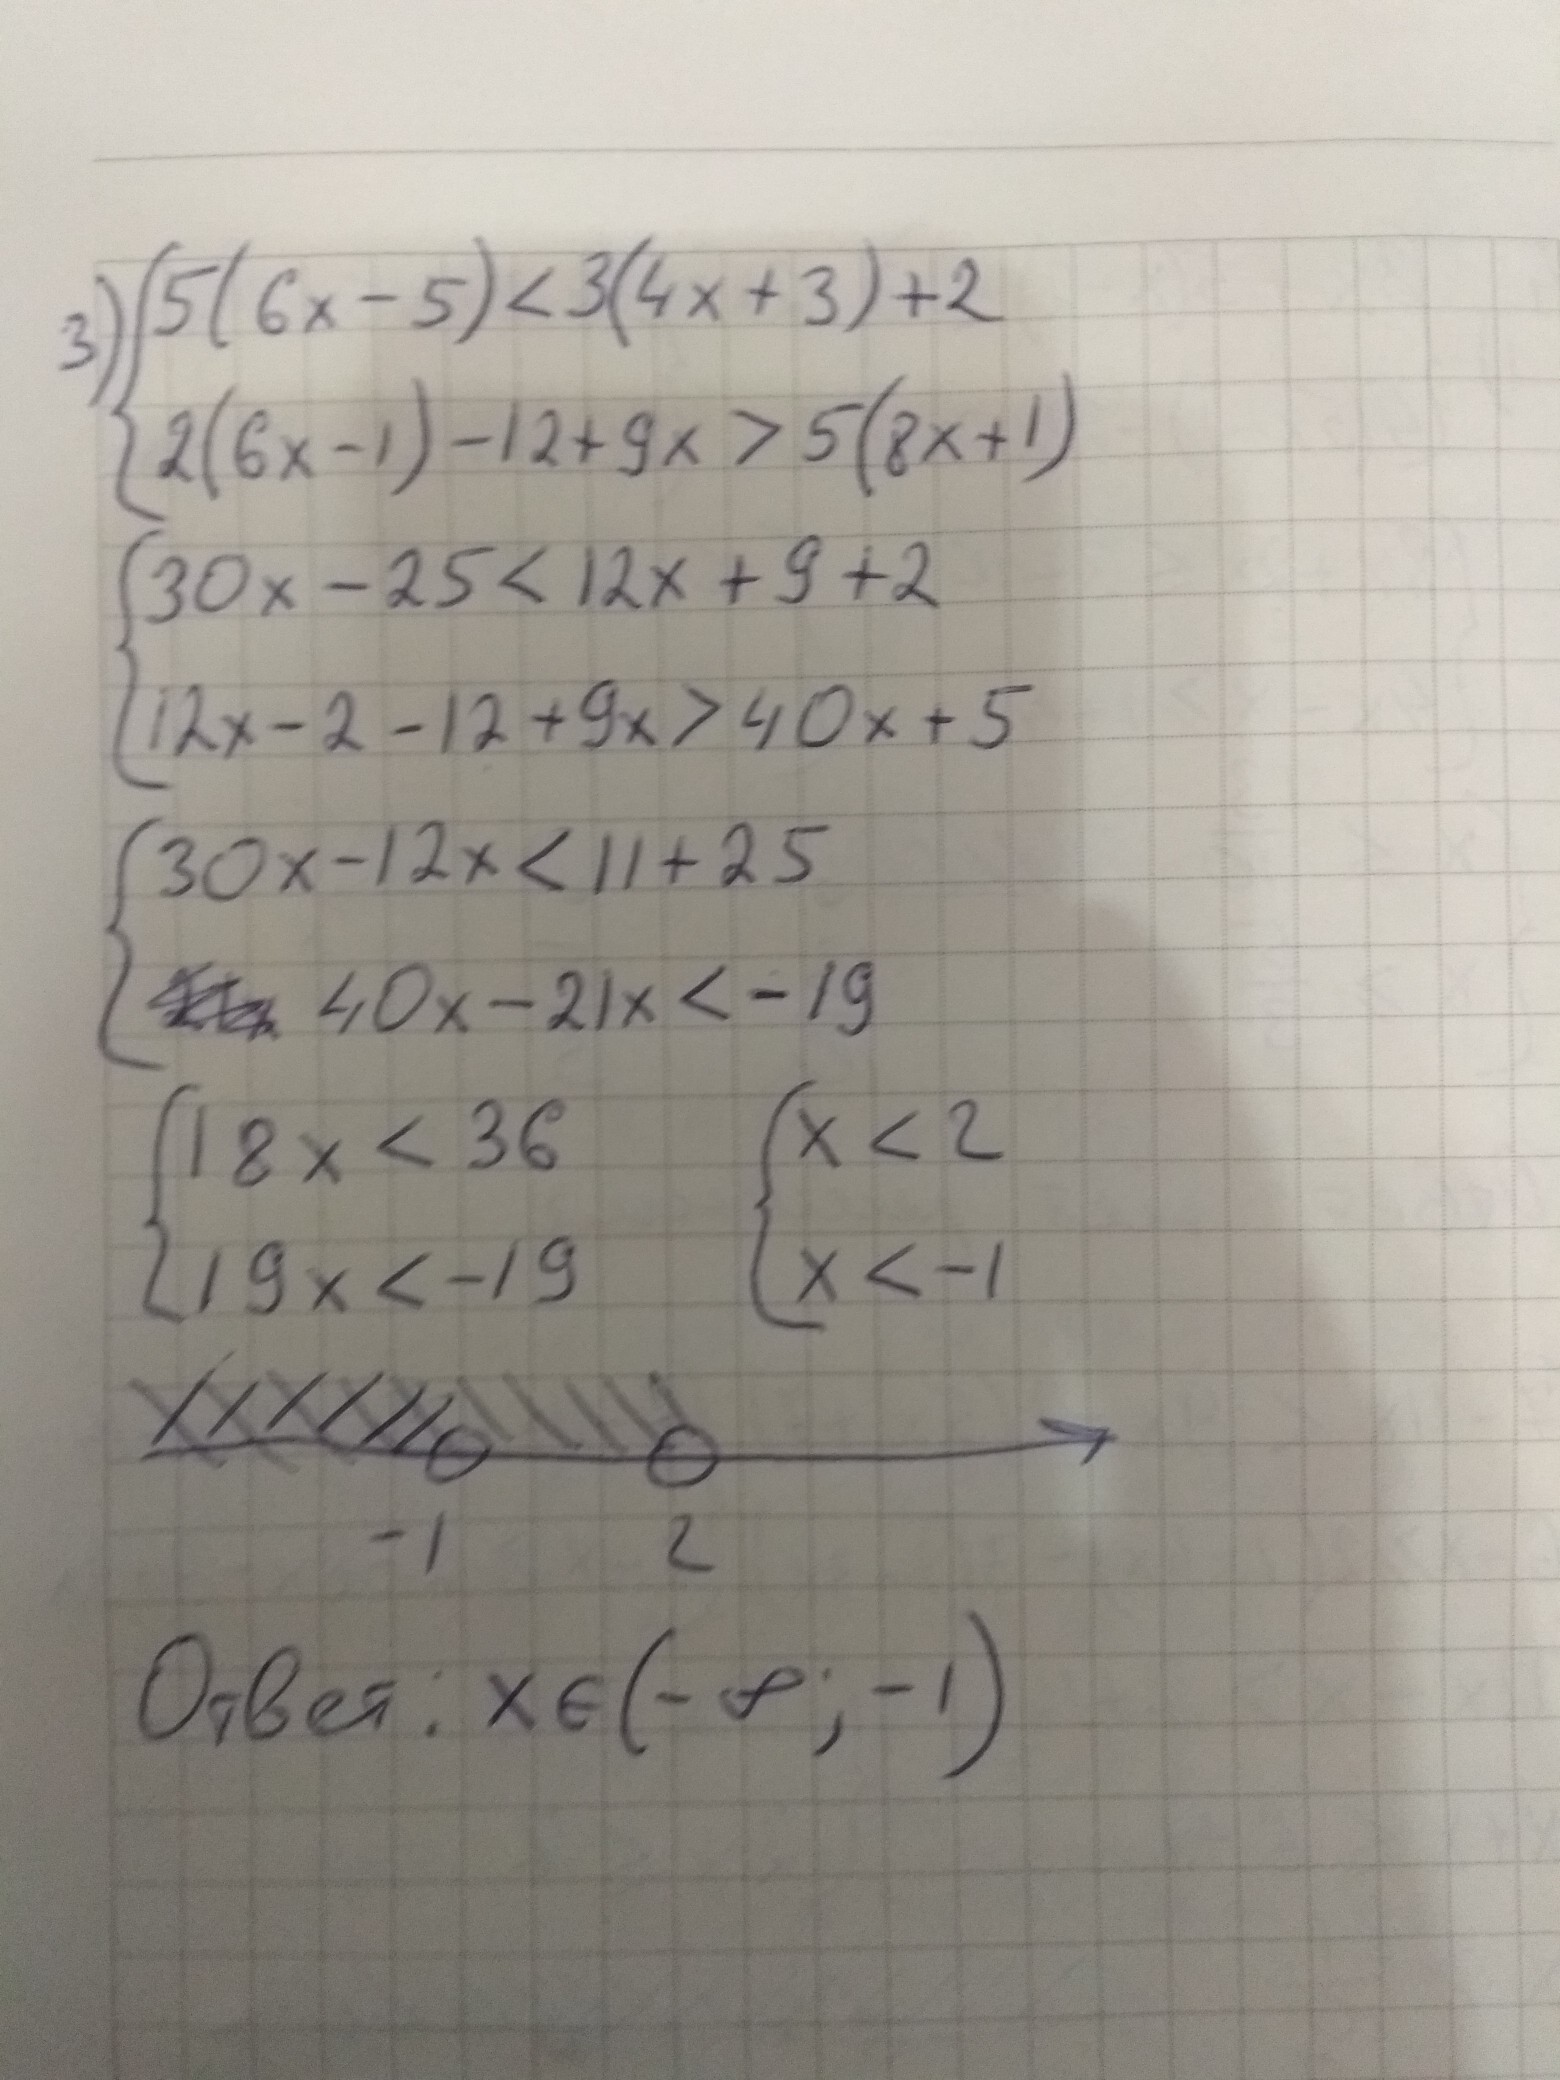 3) { 5(6x-5)<3(4x+3)+2
2(6x-1)-12+9x>5(8x+1)
{ 30x-25<12x+9+2
12x-2-12+9x>40x+5
{ 30x-12x<11+25
40x-21x<-19
{ 18x<36 { x<2
19x<-19 x<-1
-1 2
Ответ: x∈(-∞;-1)